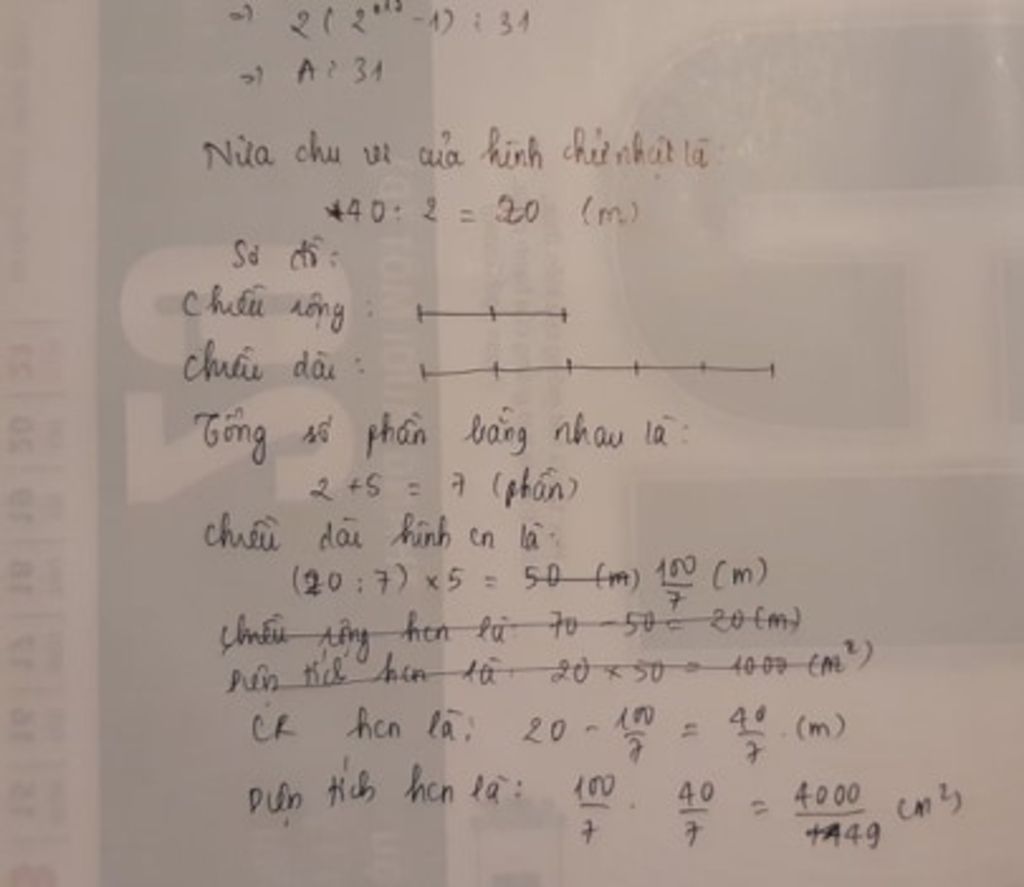 => 2(2 -1) ⋮ 31
=> A ⋮ 31
Nửa chu vi của hình chữ nhật là:
40 : 2 = 20 (m)
Sơ đồ:
Chiều rộng :
Chiều dài :
Tổng số phần bằng nhau là:
2 + 5 = 7 (phần)
Chiều dài hình cn là:
(20 : 7) × 5 = 50 (m) 100/7 (m)
Chiều rộng hcn là: 70 - 50 = 20 (m)
Diện tích hcn là: 20 × 50 = 1000 (m²)
CR hcn là: 20 - 100/7 = 40/7 (m)
Diện tích hcn là: 100/7 . 40/7 = 4000/49 (m²)